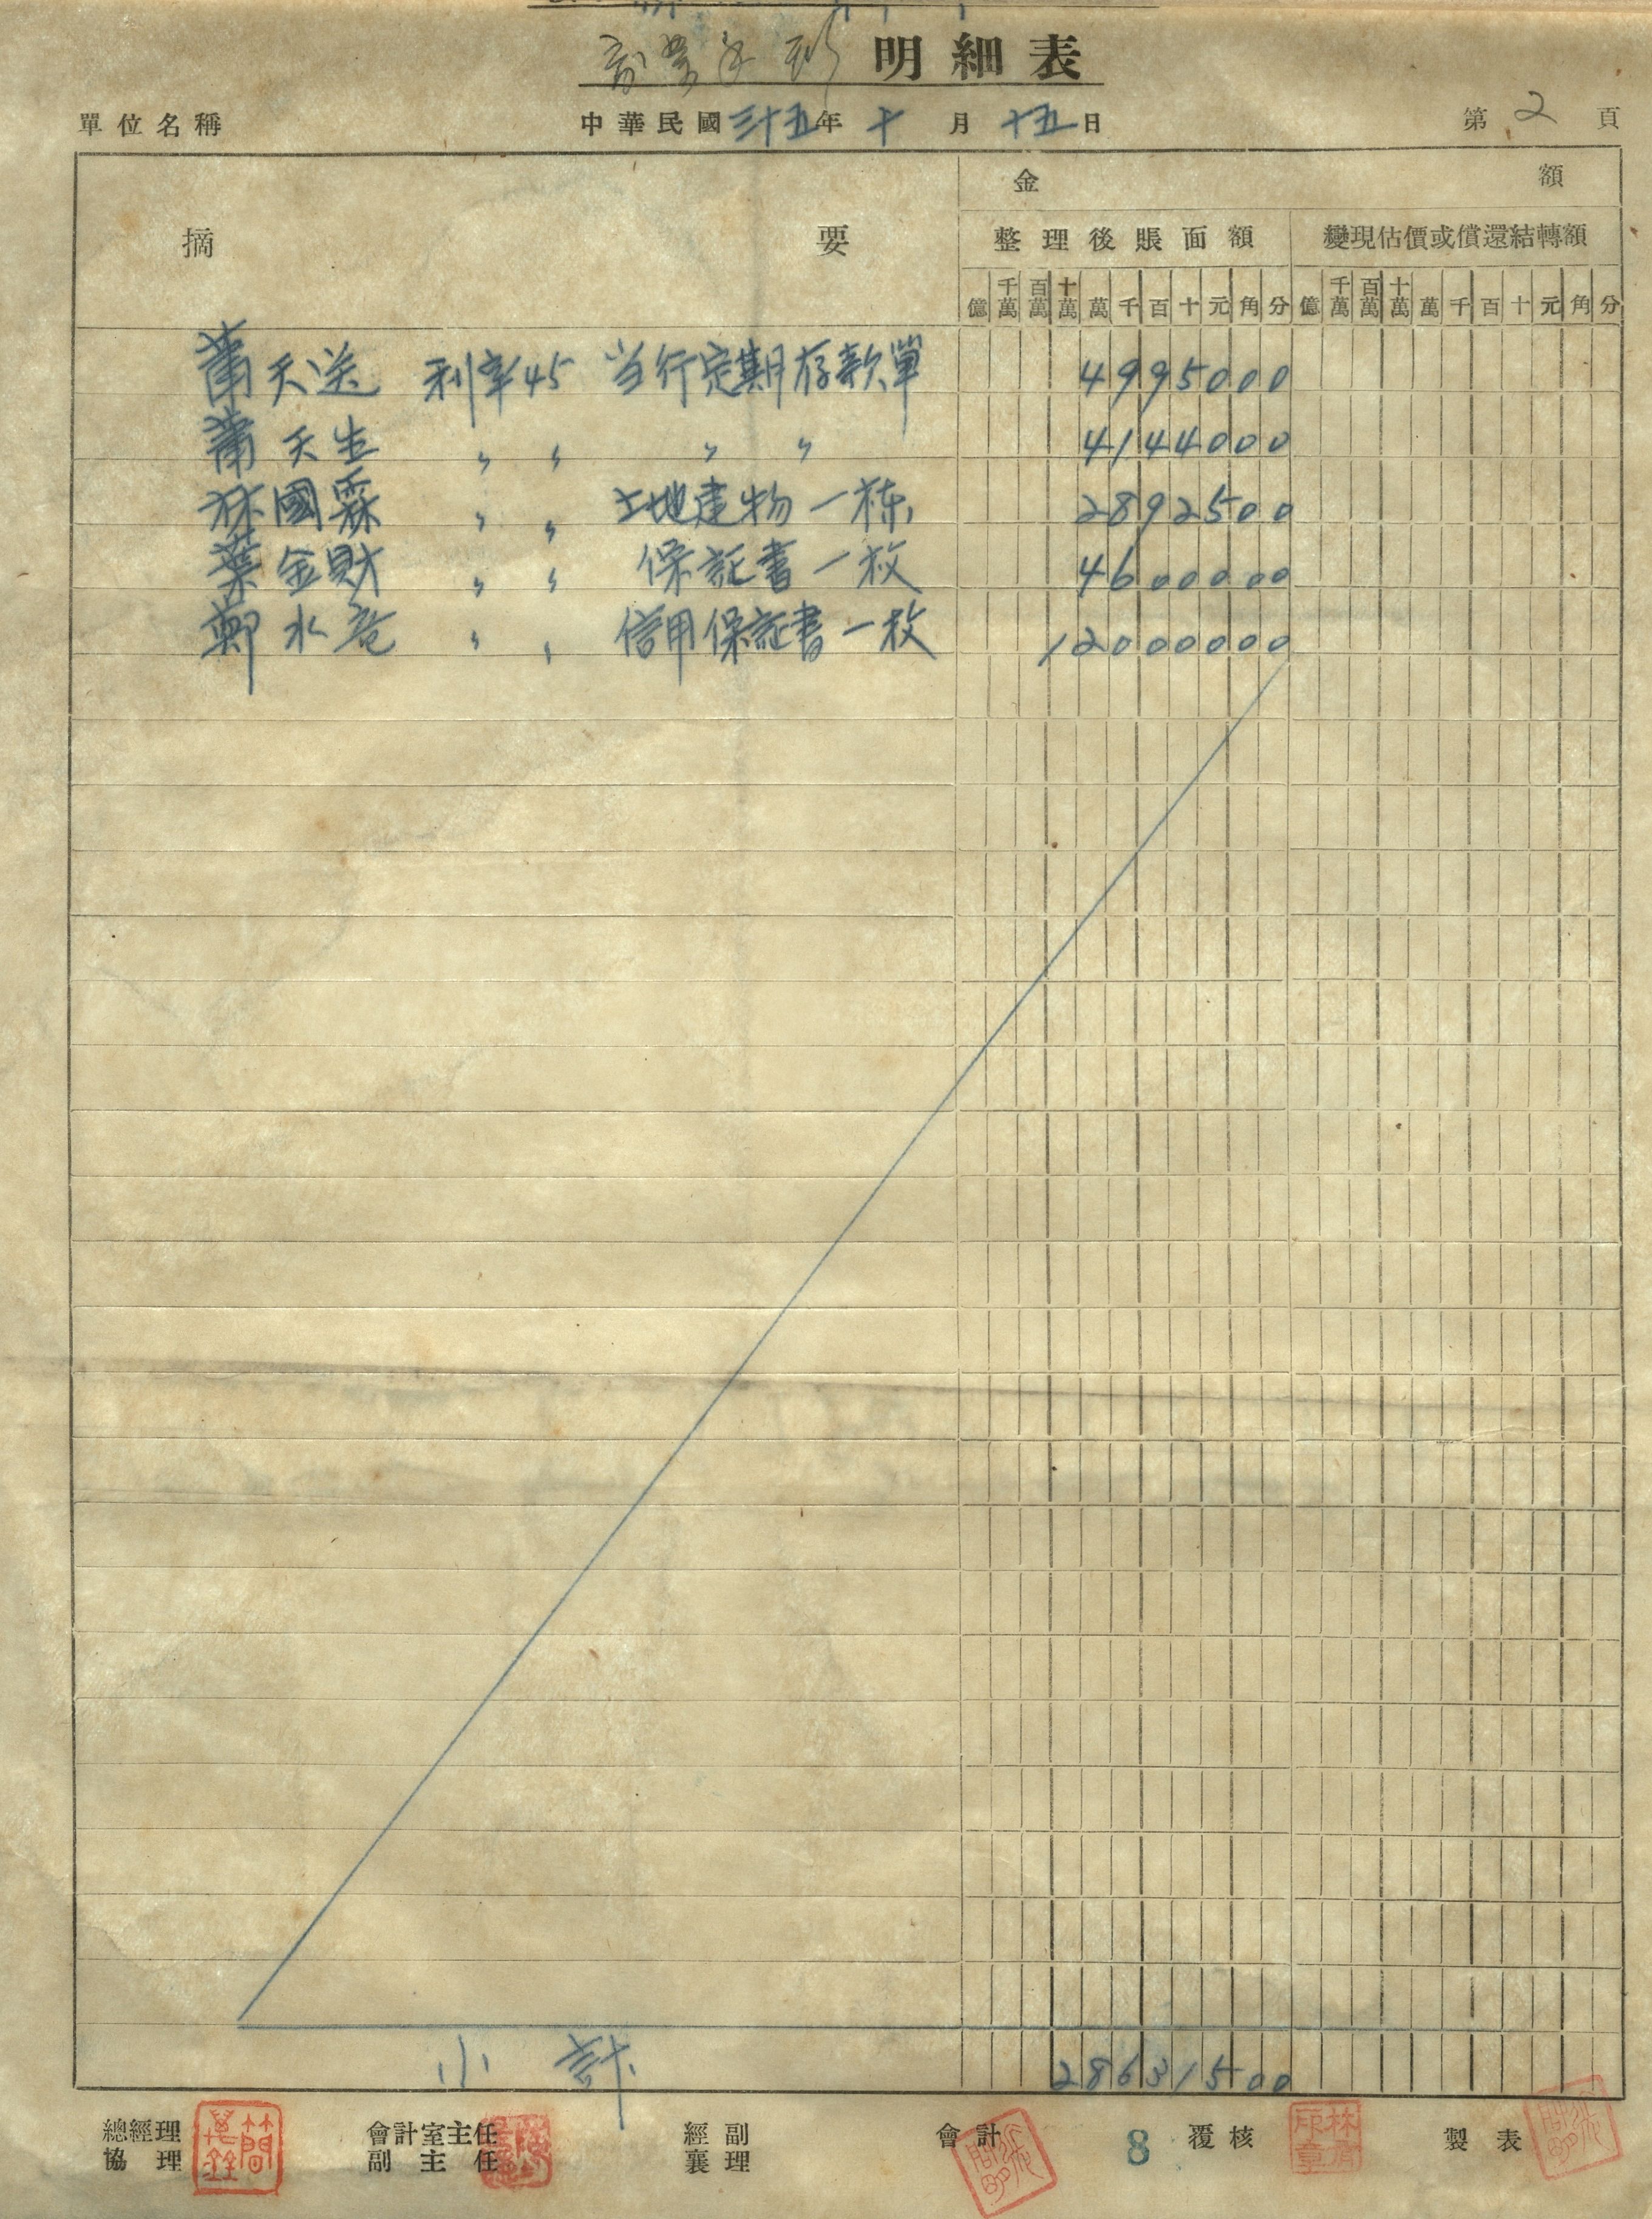 明細表
單位名稱 中華民國三十五年十月十五日 第2頁
摘要 金額
整理後賬面額 變現估價或償還結轉額
億 千萬 百萬 十萬 萬 千 百 十 元 角 分 億 千萬 百萬 十萬 萬 千 百 十 元 角 分
蕭天送 利率45 当行定期存款單 4995000
蕭天生 〃 〃 〃 〃 4144000
林國霖 〃 〃 土地建物一棟 2892500
葉金財 〃 〃 保証書一枚 4600000
鄭水 〃 〃 信用保証書一枚 12000000
小計 28631500
總經理 會計室主任 經副 會計 8 覆核 製表
協理 副主任 襄理